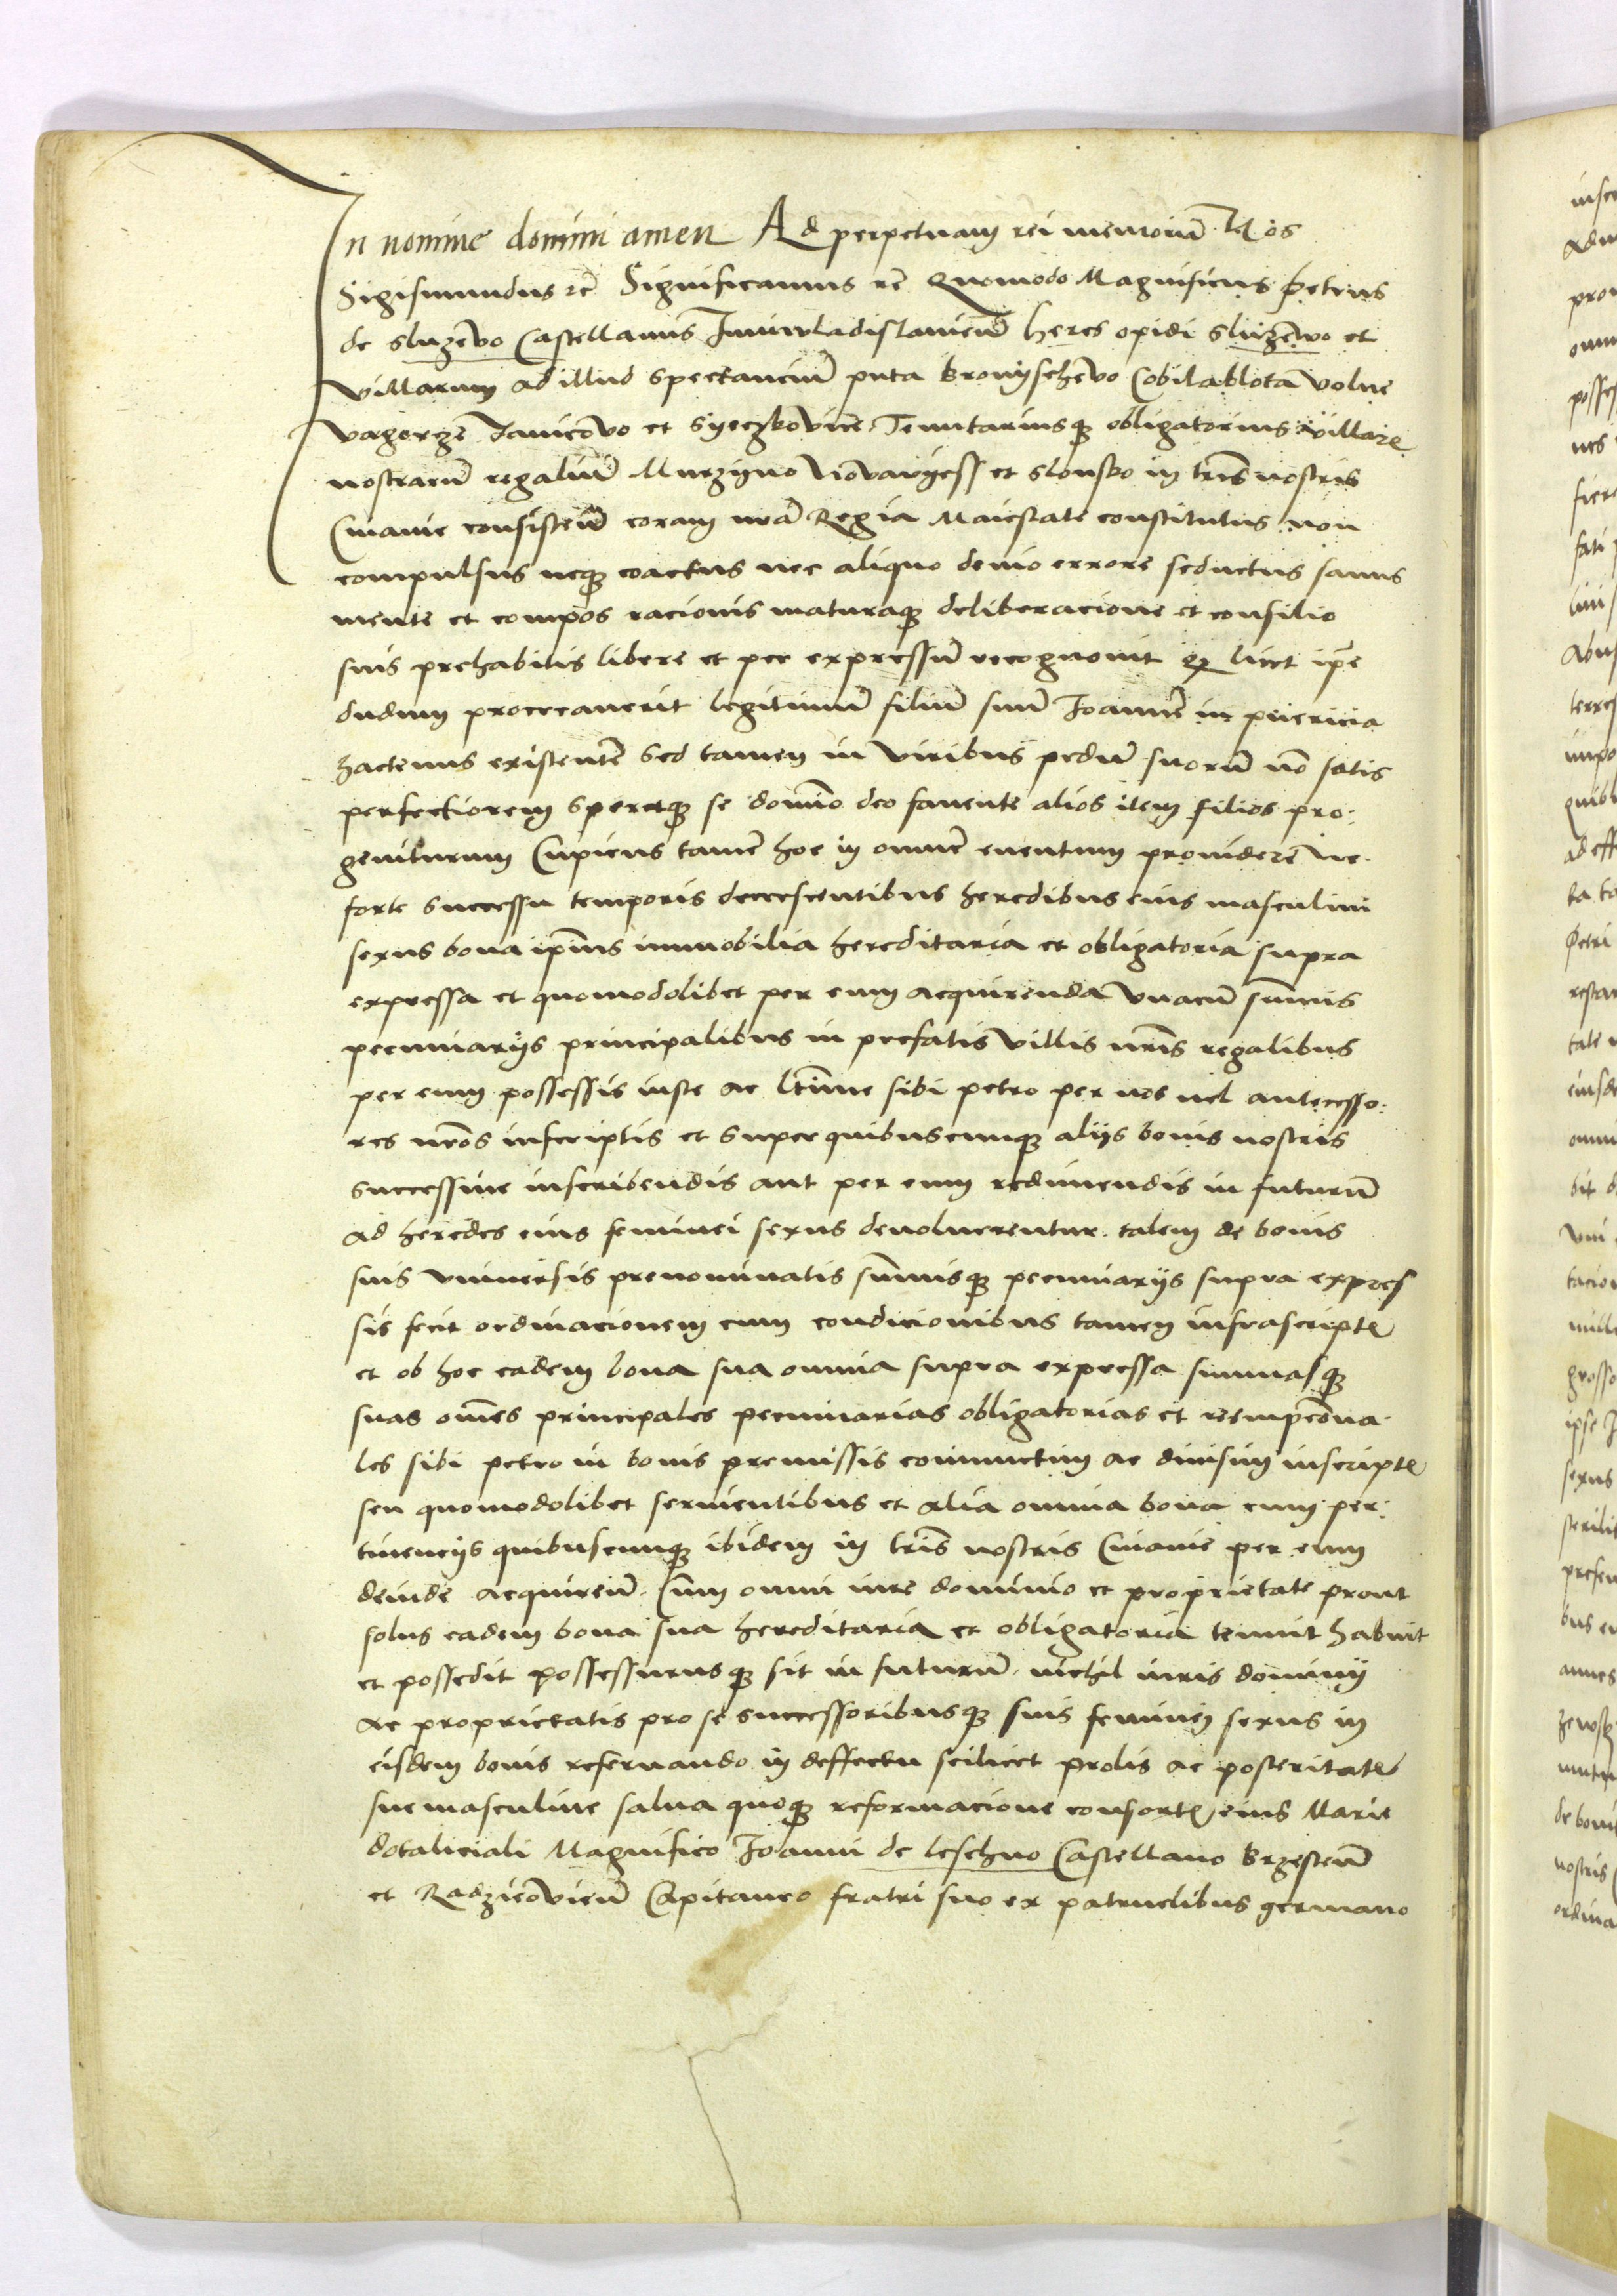 In nomine domini amen Ad perpetuam rei memoriā Nos
Sigismundus rc̄ Significamus rc̄ Quomodo Magnificus Petrus
de Sluzewo Castellanus Iuniwladislauień heres opidi Sluzewo et
villarum ad illud spectanciū puta Bronyschewo Cobilablota volne
vagorze Janicowo et Syeczkovicze Tenutariusq3 obligatorius villarꝝ
nostrarū regaliū Murzyno Novawyess et Slonsko in tr̄is nostris
Cuiauie consisteñ coram nr̄a Regia Maiestate constitutus non
compulsus neq3 coactus nec aliquo deuio errore seductus sanus
mente et compos racionis maturaq3 deliberacione et consilio
suis prehabitis libere et per expressū recognouit q2 licet ip̄e
dudum procreauerit legitimū filiū suū Joannē in puericia
hactenus existentē sed tamen in viribus pedū suorū nō satis
perfectiorem speretq3 se domīo deo fauente alios item filios pro:
geniturum Cupiens tamē hoc in omnē euentum prouidere ne
forte successu temporis decrescentibus heredibus eius masculini
sexus bona ip̄ius immobilia hereditaria et obligatoria supra
expressa et quomodolibet per eum acquirenda vnacū sum̄is
pecuniarijs principalibus in prefatis villis nr̄is regalibus
per eum possessis iuste ac ltīme sibi petro per nos vel antecesso:
res nr̄os inscriptis et super quibuscumq3 alijs bonis nostris
successiue inscribendis aut per eum redimendis in futurū
ad heredes eius feminei sexus deuoluerentur. talem de bonis
suis vniuersis prenominatis sum̄isq3 pecuniarijs supra expres
sis fecit ordinacionem cum condicionibus tamen infrascriptꝭ
et ob hoc eadem bona sua omnia supra expressa summasq3
suas om̄es principales pecuniarias obligatorias et reempcōna
les sibi petro in bonis premissis coniunctim ac diuisim inscriptꝭ
seu quomodolibet seruientibus et alia omnia bona cum per:
tinencijs quibuscumq3 ibidem in tr̄is nostris Cuiauie per eum
deinde acquireñ. Cum omni iure dominio et proprietate prout
solus eadem bona sua hereditaria et obligatoria tenuit habuit
et possedit possessurusq3 sit in futurū. nichil iuris dominij
ac proprietatis pro se successoribusq3 suis feminej sexus in
eisdem bonis reseruando in deffectu scilicet prolis ac posteritatꝭ
sue masculine salua quoq3 reformacione consortꝭ eius Marie
dotaliciali Magnifico Joanni de Leschno Castellano Brzesteñ
et Radzieovień Capitaneo fratri suo ex patruelibus germano